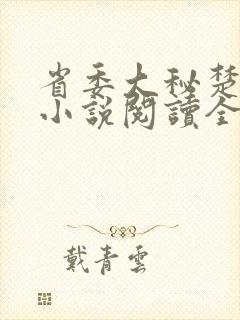 省委大秘楚
小說閱讀全
戴青雲